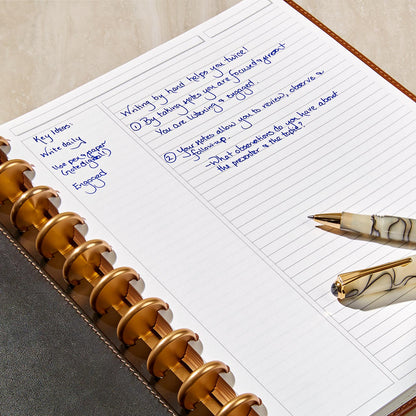 Key Ideas:
Write daily
Use pen & paper
(not digital)
Engaged
Writing by hand helps you twice!
① By taking notes you are focused & present
You are listening & engaged.
② Your notes allow you to review, observe &
follow up.
- What observations do you have about
the presenter & the topic?